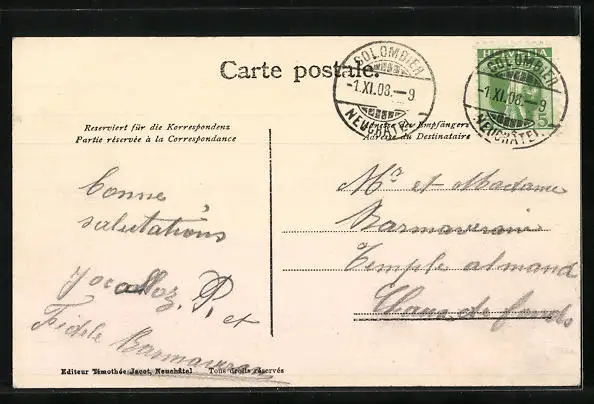 Carte postale.
COLOMBIER
-1.XI.08.—9
NEUCHÂTEL
HELVETIA
5
COLOMBIER
-1.XI.08.—9
NEUCHÂTEL
Reserviert für die Korrespondenz
Partie réservée à la Correspondance
Adresse des Empfängers
Adresse du Destinataire
Bonne
salutations
P. et
Fidele
Mr et Madame
Temple almand
Chaux de fonds
Editeur Timothée Jacot, Neuchâtel Tous droits réservés